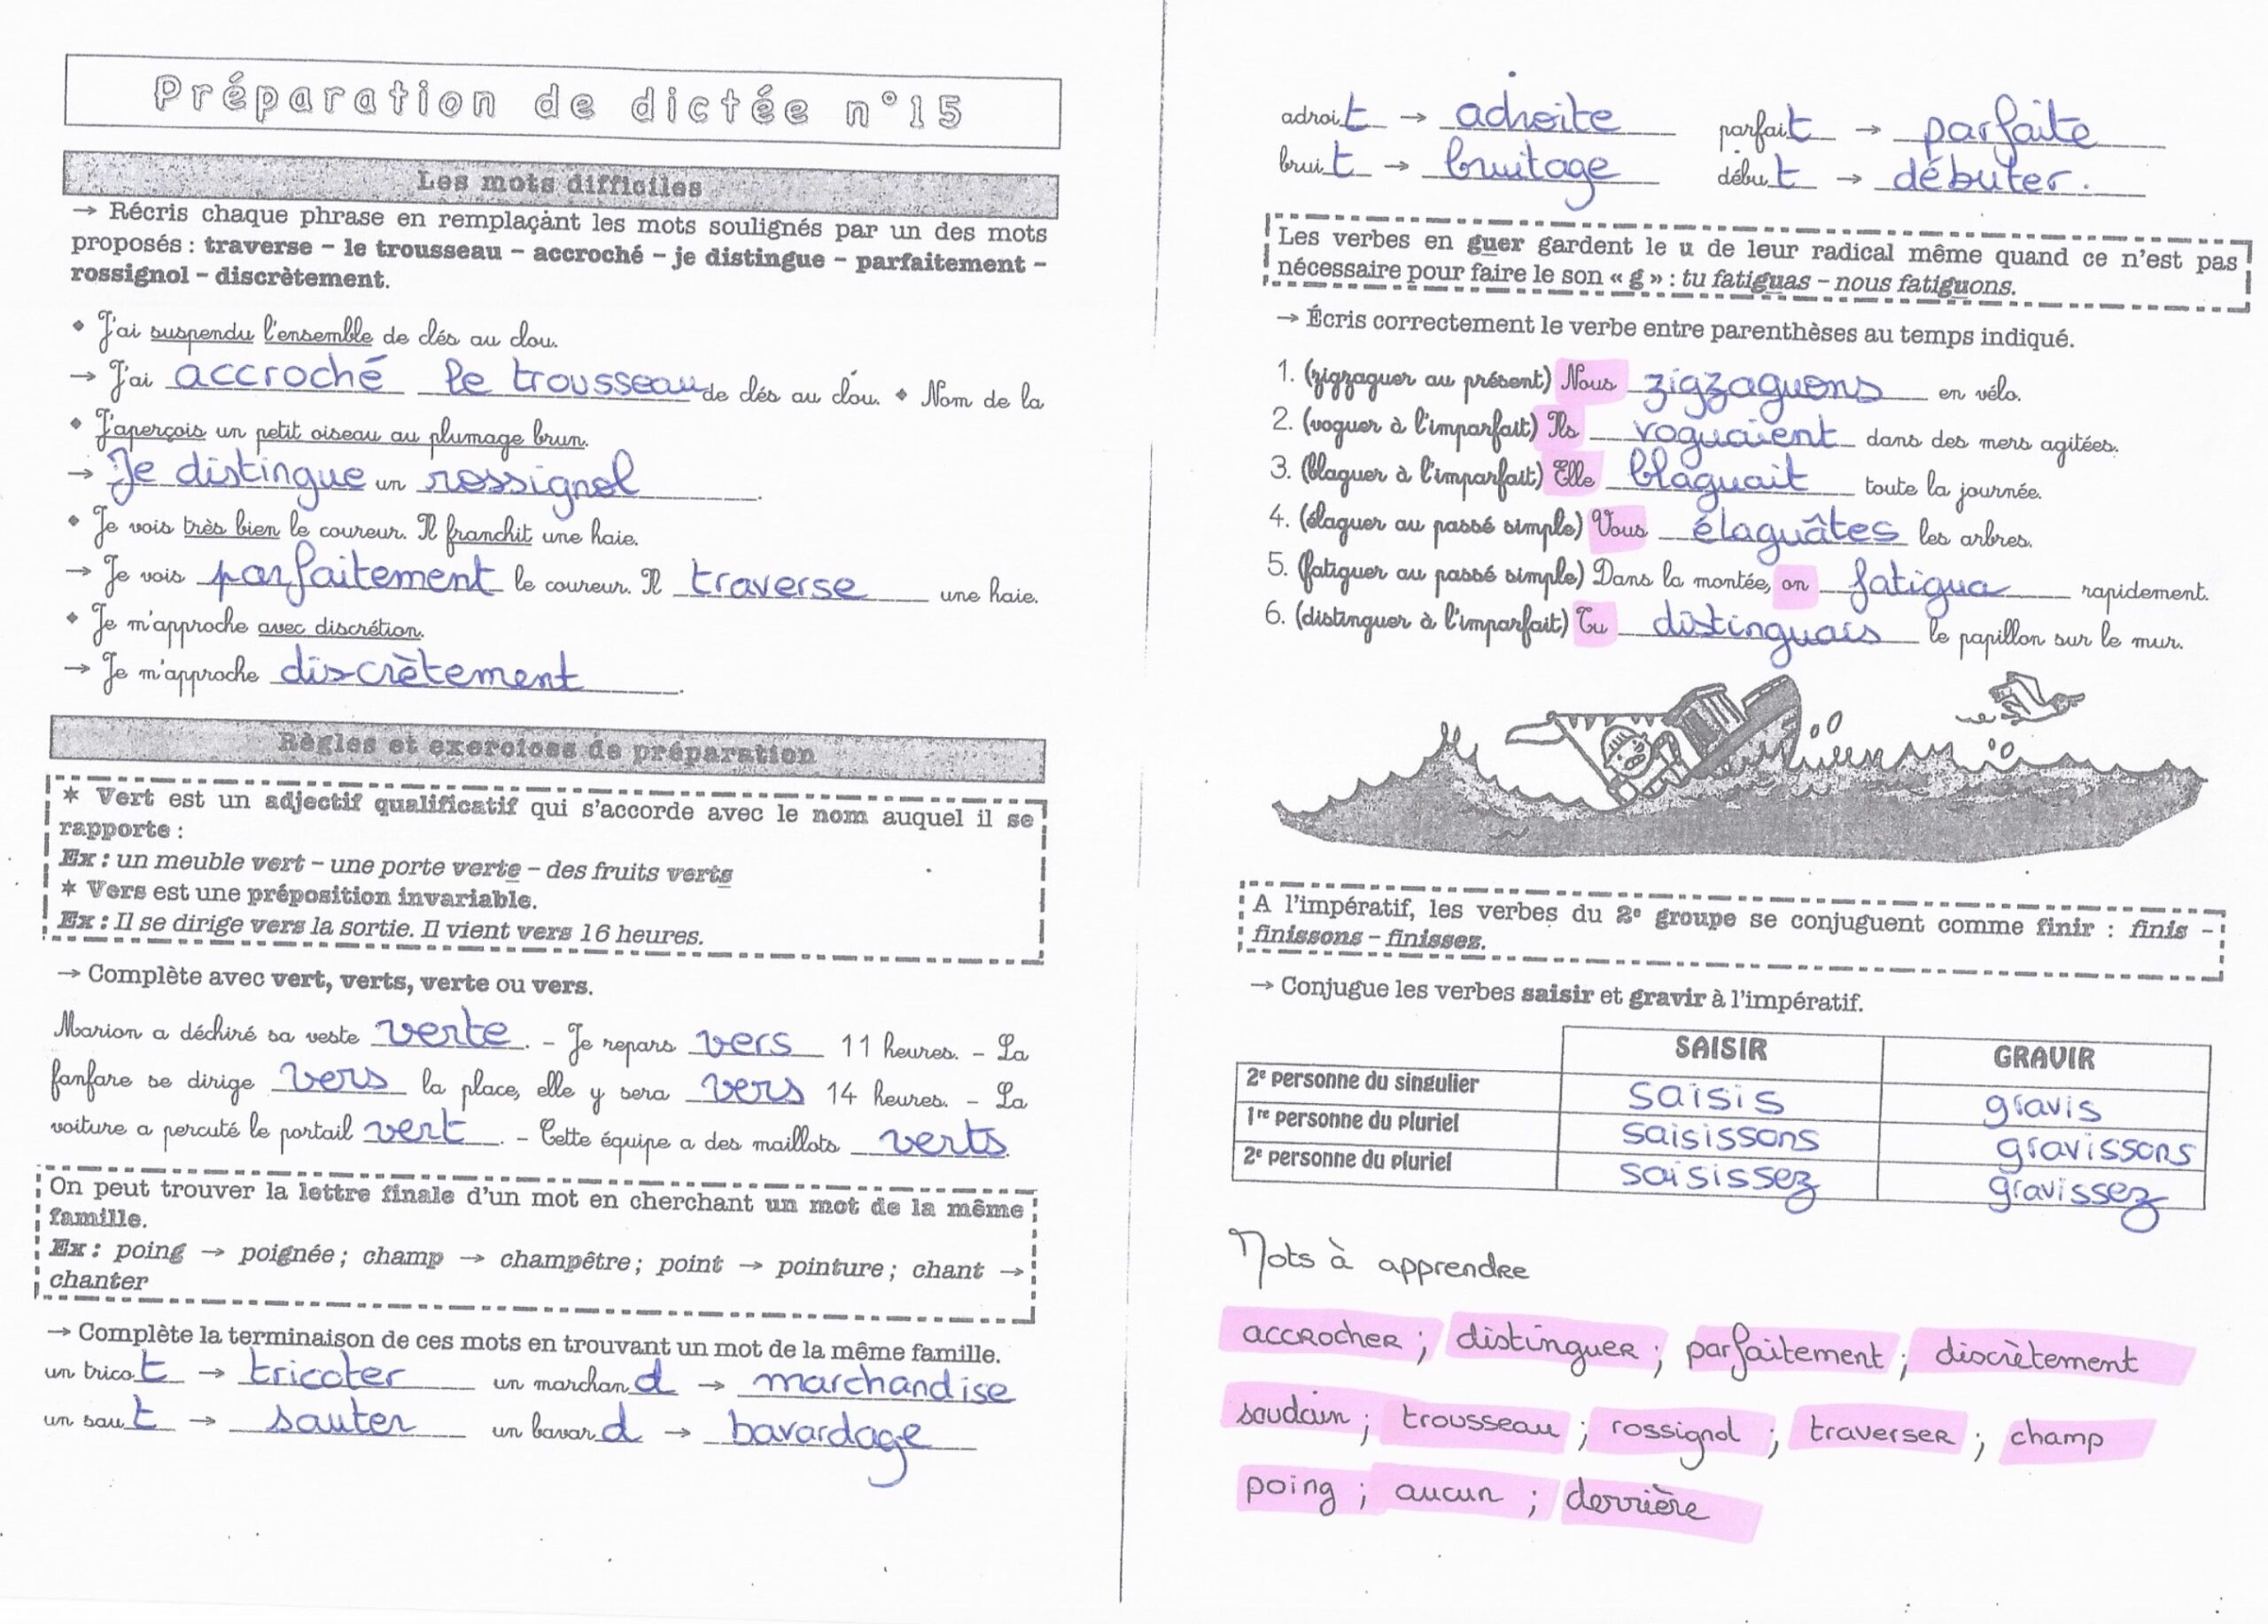 Préparation de dictée n°15
Les mots difficiles
→ Récris chaque phrase en remplaçant les mots soulignés par un des mots
proposés : traverse – le trousseau – accroché – je distingue – parfaitement –
rossignol – discrètement.
◆ J'ai suspendu l'ensemble de clés au clou.
→ J'ai accroché le trousseau de clés au clou. ◆ Nom de la
◆ J'aperçois un petit oiseau au plumage brun.
→ Je distingue un rossignol.
◆ Je vois très bien le coureur. Il franchit une haie.
→ Je vois parfaitement le coureur. Il traverse une haie.
◆ Je m'approche avec discrétion.
→ Je m'approche discrètement.
Règles et exercices de préparation
* Vert est un adjectif qualificatif qui s'accorde avec le nom auquel il se
rapporte :
Ex : un meuble vert – une porte verte – des fruits verts
* Vers est une préposition invariable.
Ex : Il se dirige vers la sortie. Il vient vers 16 heures.
→ Complète avec vert, verts, verte ou vers.
Marion a déchiré sa veste verte. – Je repars vers 11 heures. – La
fanfare se dirige vers la place, elle y sera vers 14 heures. – La
voiture a percuté le portail vert. – Cette équipe a des maillots verts.
On peut trouver la lettre finale d'un mot en cherchant un mot de la même
famille.
Ex : poing → poignée ; champ → champêtre ; point → pointure ; chant →
chanter
→ Complète la terminaison de ces mots en trouvant un mot de la même famille.
un tricot → tricoter un marchand → marchandise
un saut → sauter un bavard → bavardage
adroit → adroite parfait → parfaite
bruit → bruitage début → débuter.
Les verbes en guer gardent le u de leur radical même quand ce n'est pas
nécessaire pour faire le son « g » : tu fatiguas – nous fatiguons.
→ Écris correctement le verbe entre parenthèses au temps indiqué.
1. (zigzaguer au présent) Nous zigzaguons en vélo.
2. (voguer à l'imparfait) Ils voguaient dans des mers agitées.
3. (blaguer à l'imparfait) Elle blaguait toute la journée.
4. (élaguer au passé simple) Vous élaguâtes les arbres.
5. (fatiguer au passé simple) Dans la montée, on fatigua rapidement.
6. (distinguer à l'imparfait) Tu distinguais le papillon sur le mur.
A l'impératif, les verbes du 2e groupe se conjuguent comme finir : finis –
finissons – finissez.
→ Conjugue les verbes saisir et gravir à l'impératif.
SAISIR GRAVIR
2e personne du singulier saisis gravis
1re personne du pluriel saisissons gravissons
2e personne du pluriel saisissez gravissez
Mots à apprendre
accrocher ; distinguer ; parfaitement ; discrètement
soudain ; trousseau ; rossignol ; traverser ; champ
poing ; aucun ; derrière